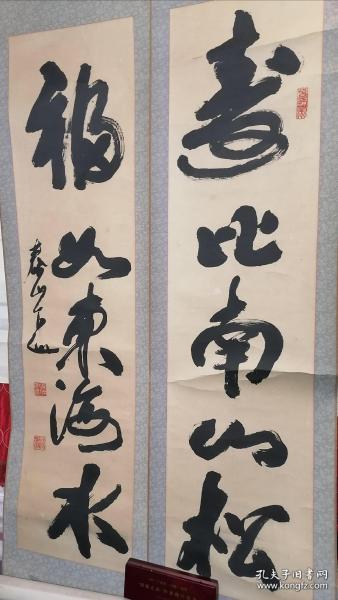 寿比南山松
福如东海水
泰山
孔夫子旧书网
www.kongfz.com